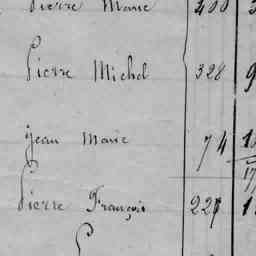 Pierre Marie 400
Pierre Michel 328 9
Jean Marie 74
Pierre François 227 1